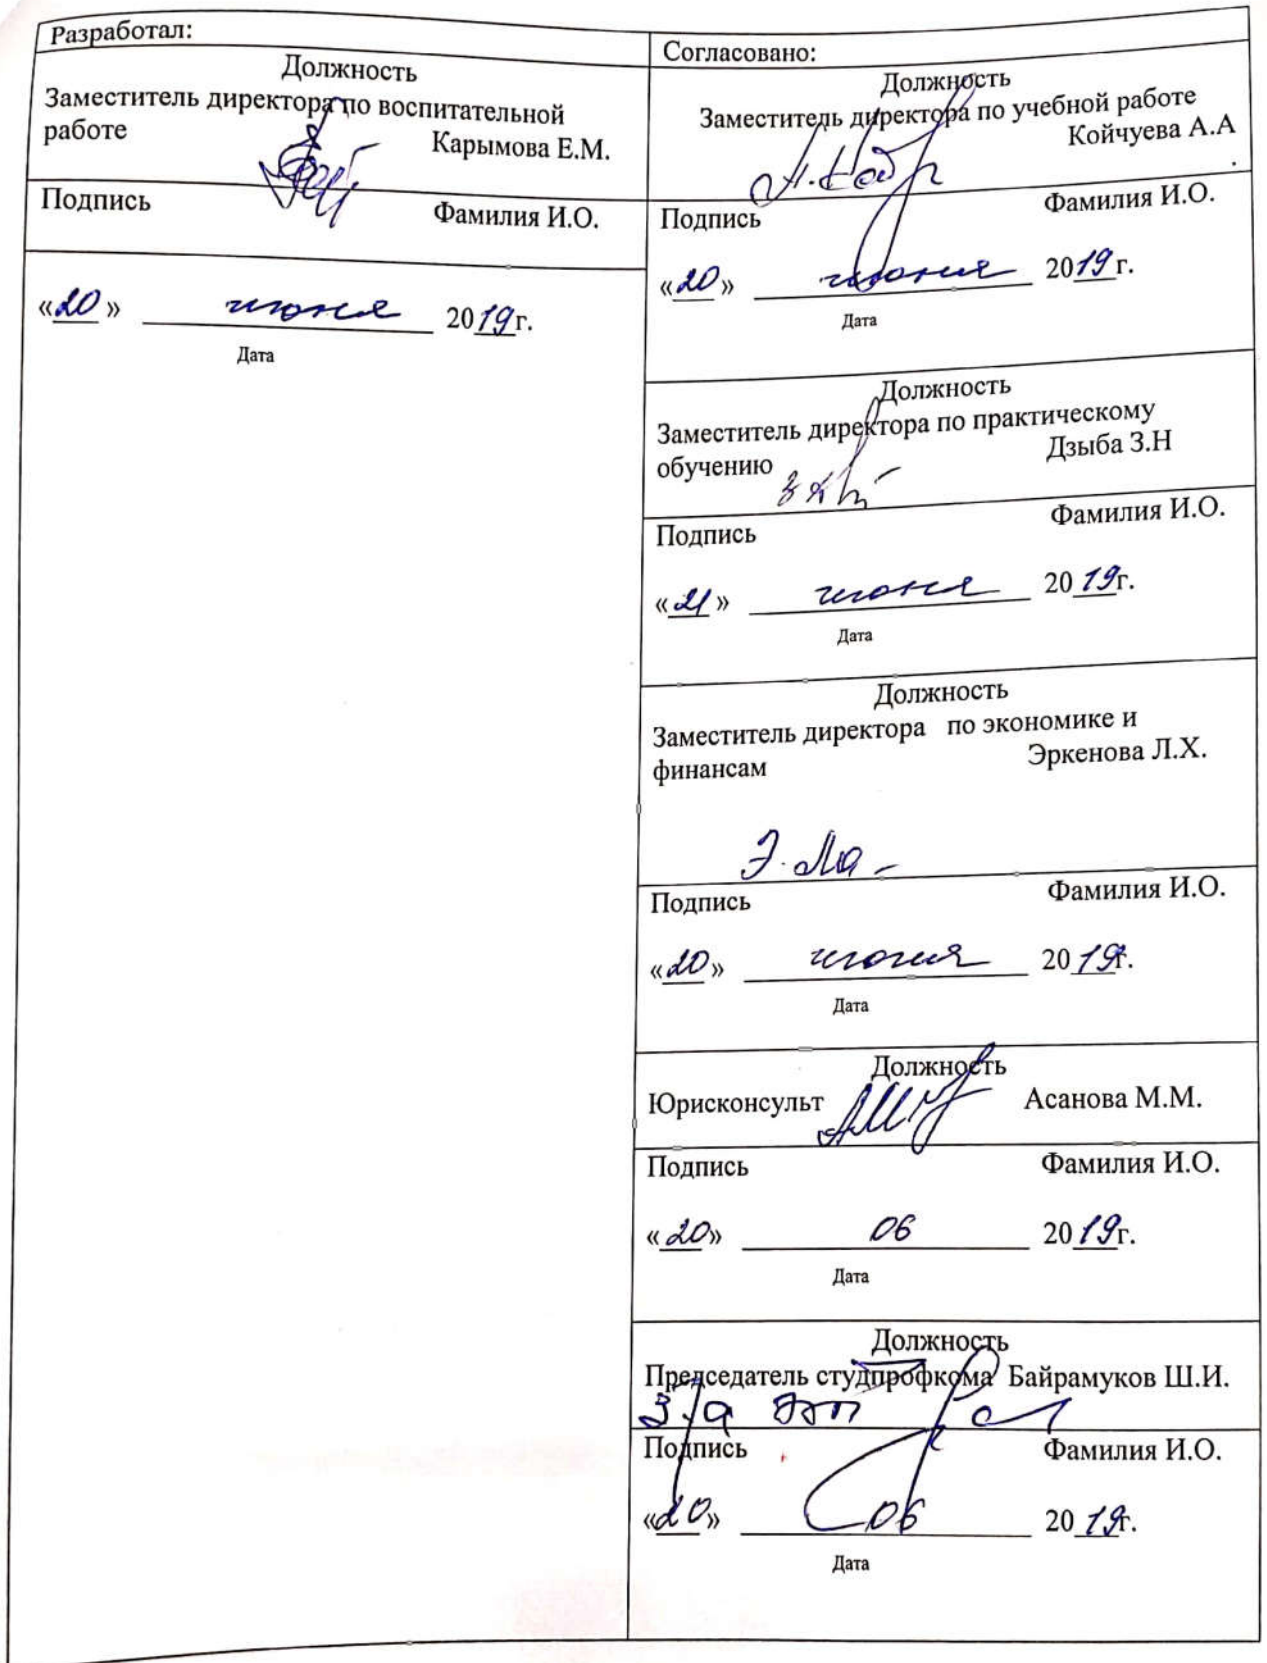 Разработал:
Должность
Заместитель директора по воспитательной
работе Карымова Е.М.
Подпись Фамилия И.О.
«20» июня 2019г.
Дата
Согласовано:
Должность
Заместитель директора по учебной работе
Койчуева А.А
.
Подпись Фамилия И.О.
«20» июня 2019г.
Дата
Должность
Заместитель директора по практическому
обучению Дзыба З.Н
Подпись Фамилия И.О.
«21» июня 2019г.
Дата
Должность
Заместитель директора по экономике и
финансам Эркенова Л.Х.
Подпись Фамилия И.О.
«20» июня 2019г.
Дата
Должность
Юрисконсульт Асанова М.М.
Подпись Фамилия И.О.
«20» 06 2019г.
Дата
Должность
Председатель студпрофкома Байрамуков Ш.И.
Подпись Фамилия И.О.
«20» 06 2019г.
Дата